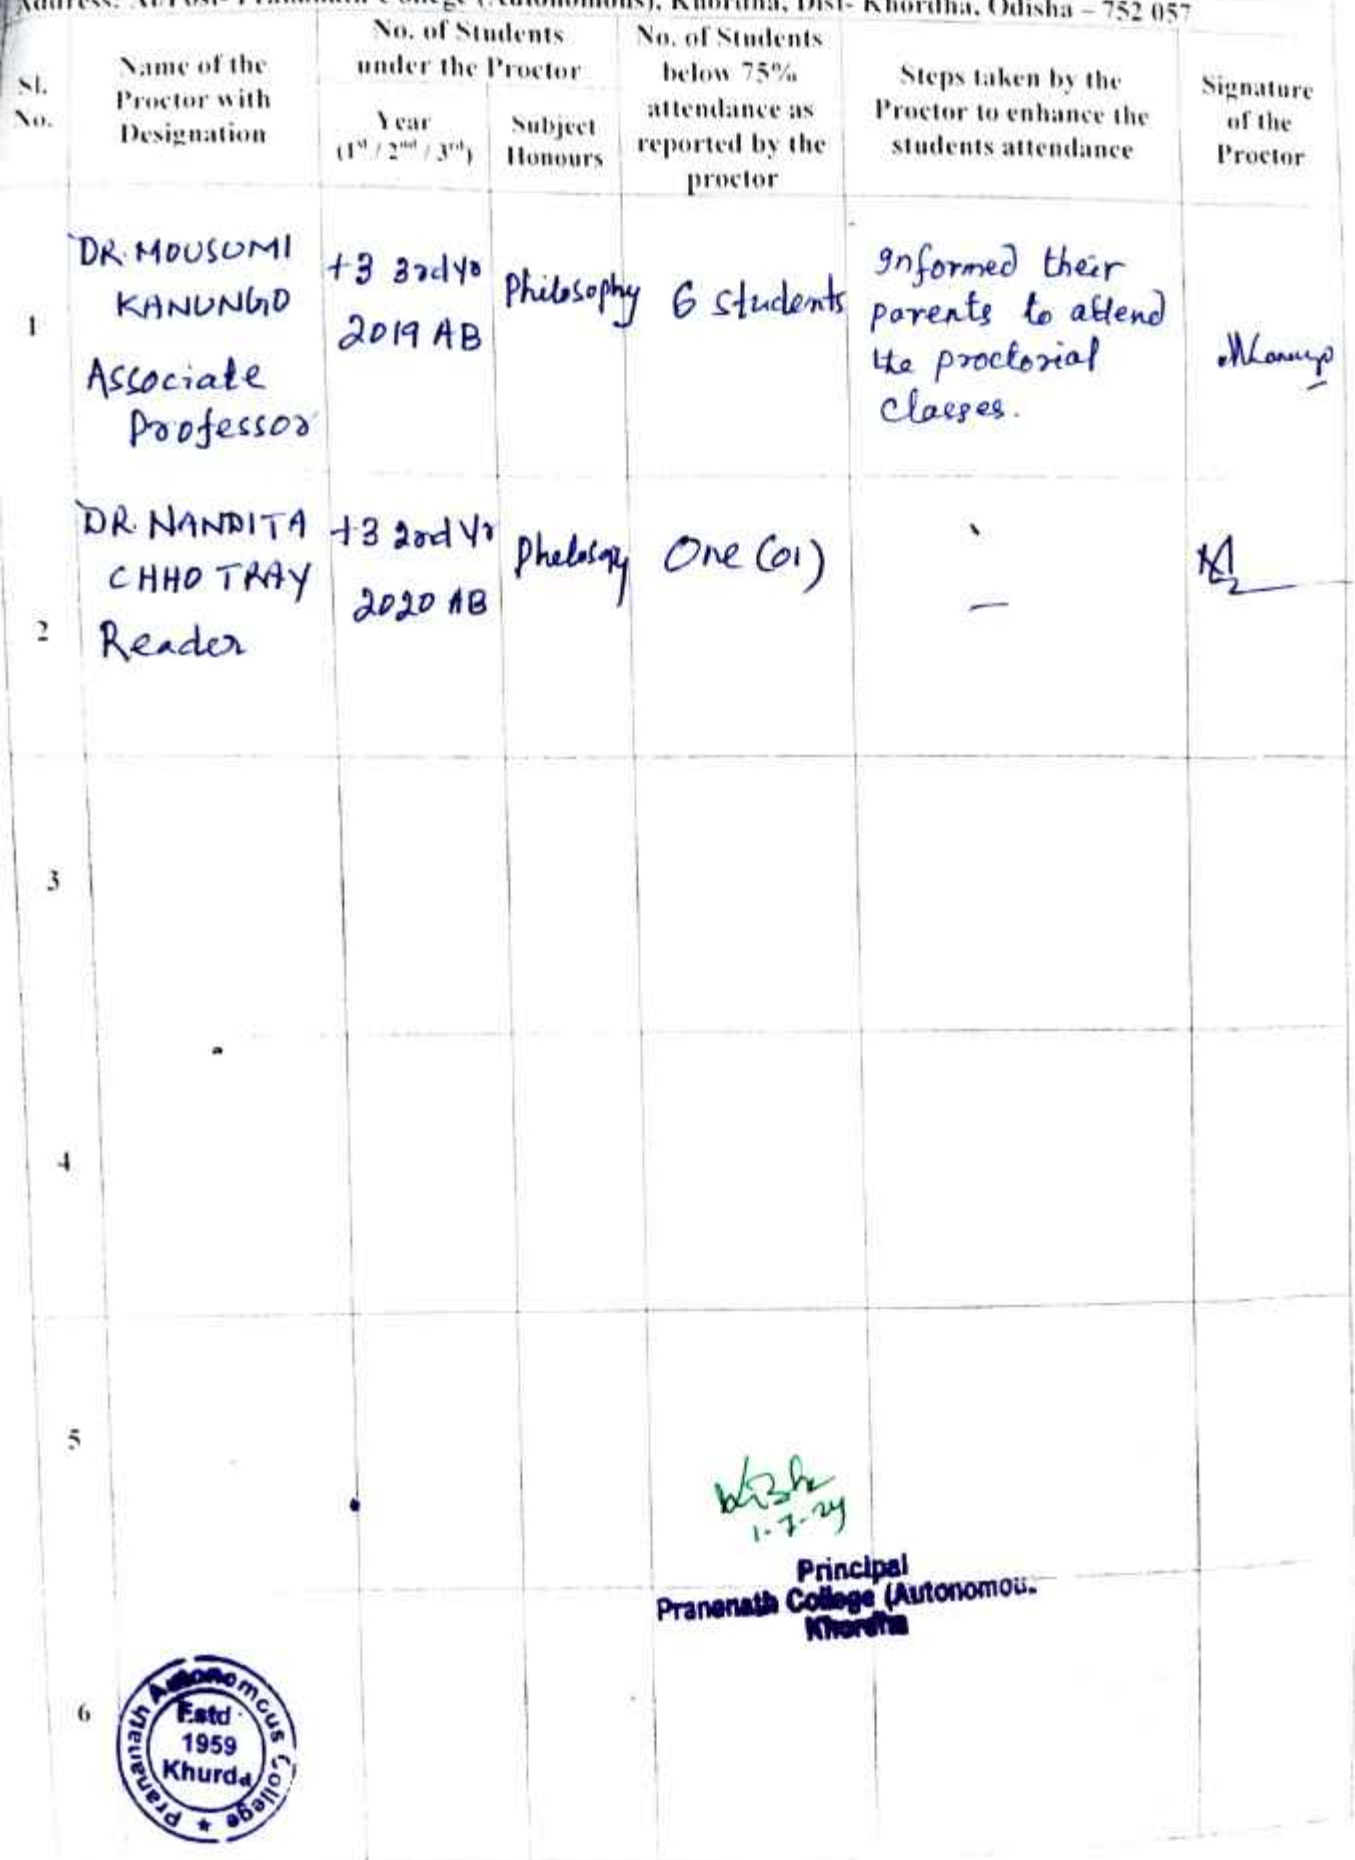 Address: At/Post- Prananath College (Autonomous), Khordha, Dist- Khordha, Odisha – 752 057
Sl. No.
Name of the Proctor with Designation
No. of Students under the Proctor
Year (1st / 2nd / 3rd)
Subject Honours
No. of Students below 75% attendance as reported by the proctor
Steps taken by the Proctor to enhance the students attendance
Signature of the Proctor
1
DR. MOUSUMI
KANUNGO
Associate
Professor
+3 3rd Yr
2019 AB
Philosophy
6 students
Informed their
parents to attend
the proctorial
Classes.
2
DR. NANDITA
CHHOTRAY
Reader
+3 2nd Yr
2020 AB
Phelosopy
One (01)
—
3
4
5
1-7-24
Principal
Prananath College (Autonomous
Khordha
6
Prananath Autonomous College
Estd
1959
Khurda